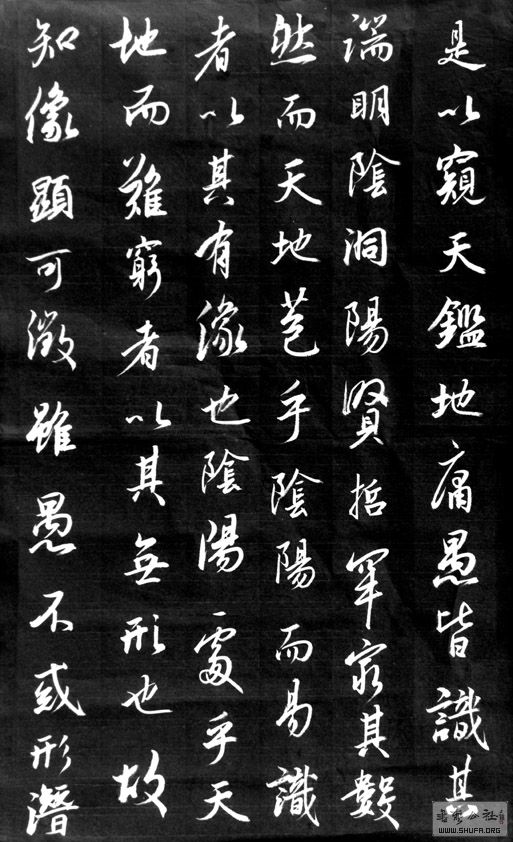 是以窺天鑑地庸愚皆識其
端明陰洞陽賢哲罕窮其數
然而天地苞乎陰陽而易識
者以其有像也陰陽處乎天
地而難窮者以其無形也故
知像顯可徵雖愚不惑形潛
書法公社
WWW.SHUFA.ORG